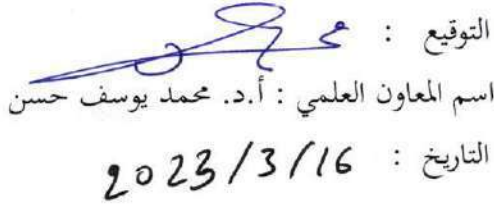 التوقيع :
اسم المعاون العلمي : أ.د. محمد يوسف حسن
التاريخ : 2023/3/16